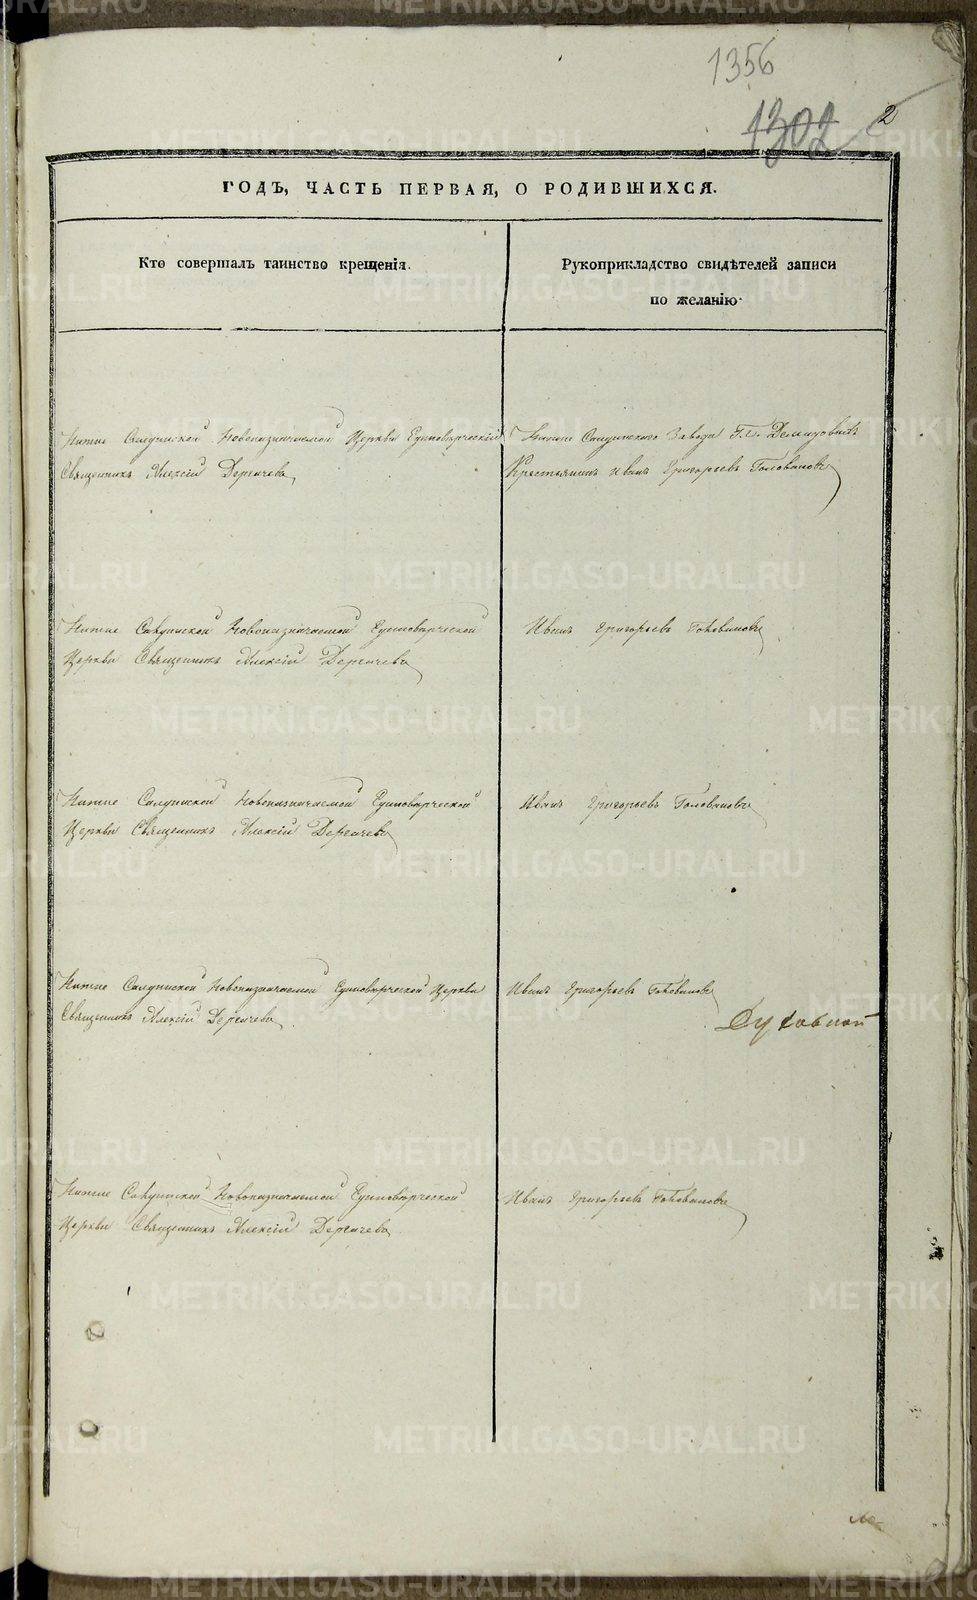 1356
1302
2
ГОДЪ, ЧАСТЬ ПЕРВАЯ, О РОДИВШИХСЯ.
Кто совершалъ таинство крещенія.
Рукоприкладство свидѣтелей записи
по желанію
Нижне Салдинской Новоназначаемой Церкви Единовѣрческій
Священникъ Алексій Дергачевъ
Нижне Салдинскаго Завода Г.г. Демидовыхъ
Крестьянинъ Иванъ Григорьевъ Головановъ
Нижне Салдинской Новоназначаемой Единовѣрческой
Церкви Священникъ Алексій Дергачевъ
Иванъ Григорьевъ Головановъ
Нижне Салдинской Новоназначаемой Единовѣрческой
Церкви Священникъ Алексій Дергачевъ
Иванъ Григорьевъ Головановъ
Нижне Салдинской Новоназначаемой Единовѣрческой Церкви
Священникъ Алексій Дергачевъ
Иванъ Григорьевъ Головановъ
Духовной
Нижне Салдинской Новоназначаемой Единовѣрческой
Церкви Священникъ Алексій Дергачевъ
Иванъ Григорьевъ Головановъ
METRIKI.GASO-URAL.RU